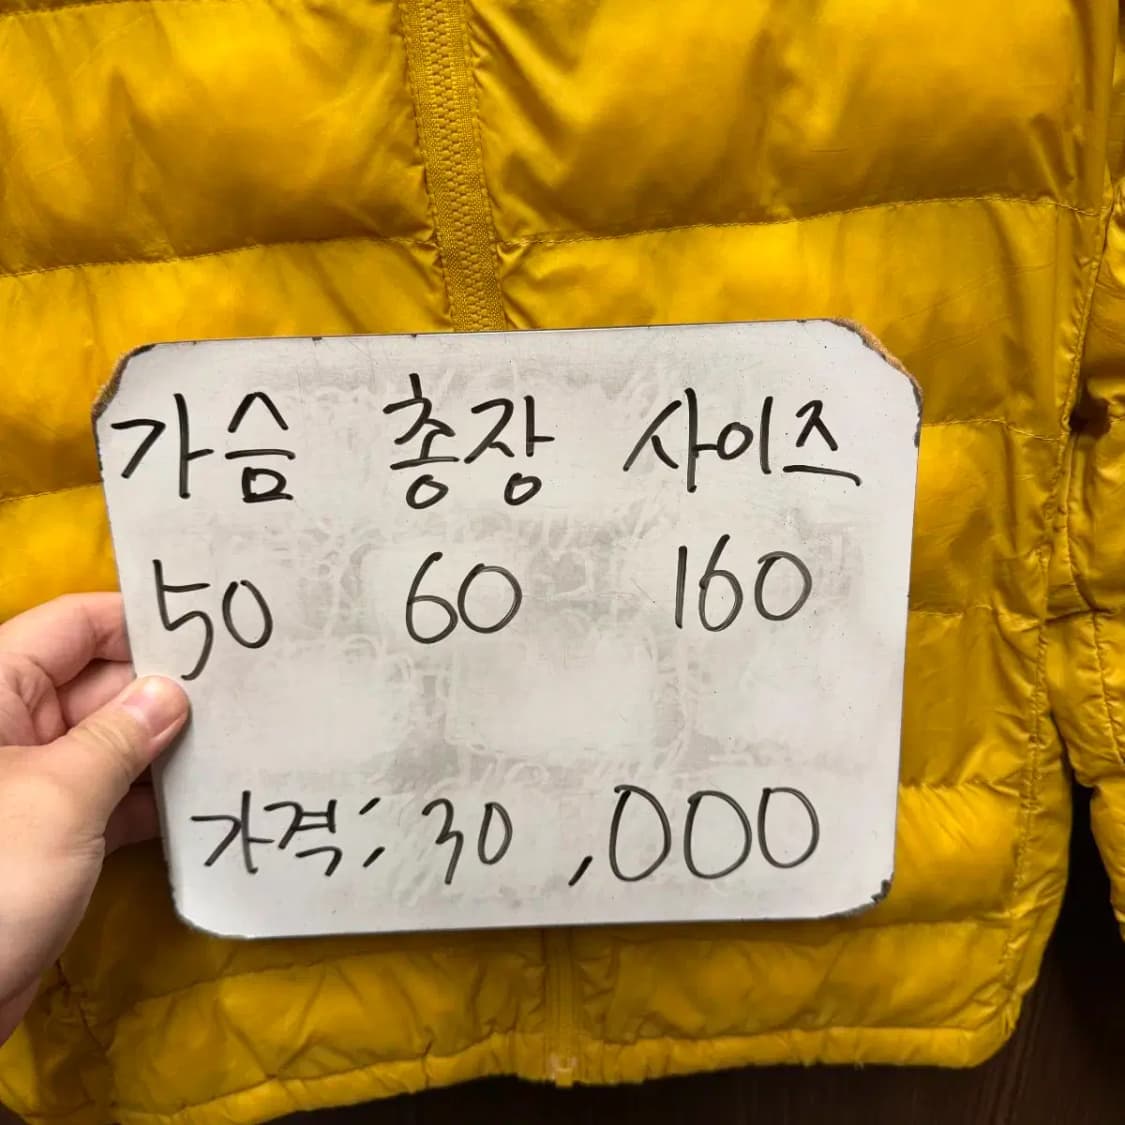 가슴 총장 사이즈
50 60 160
가격: 30,000